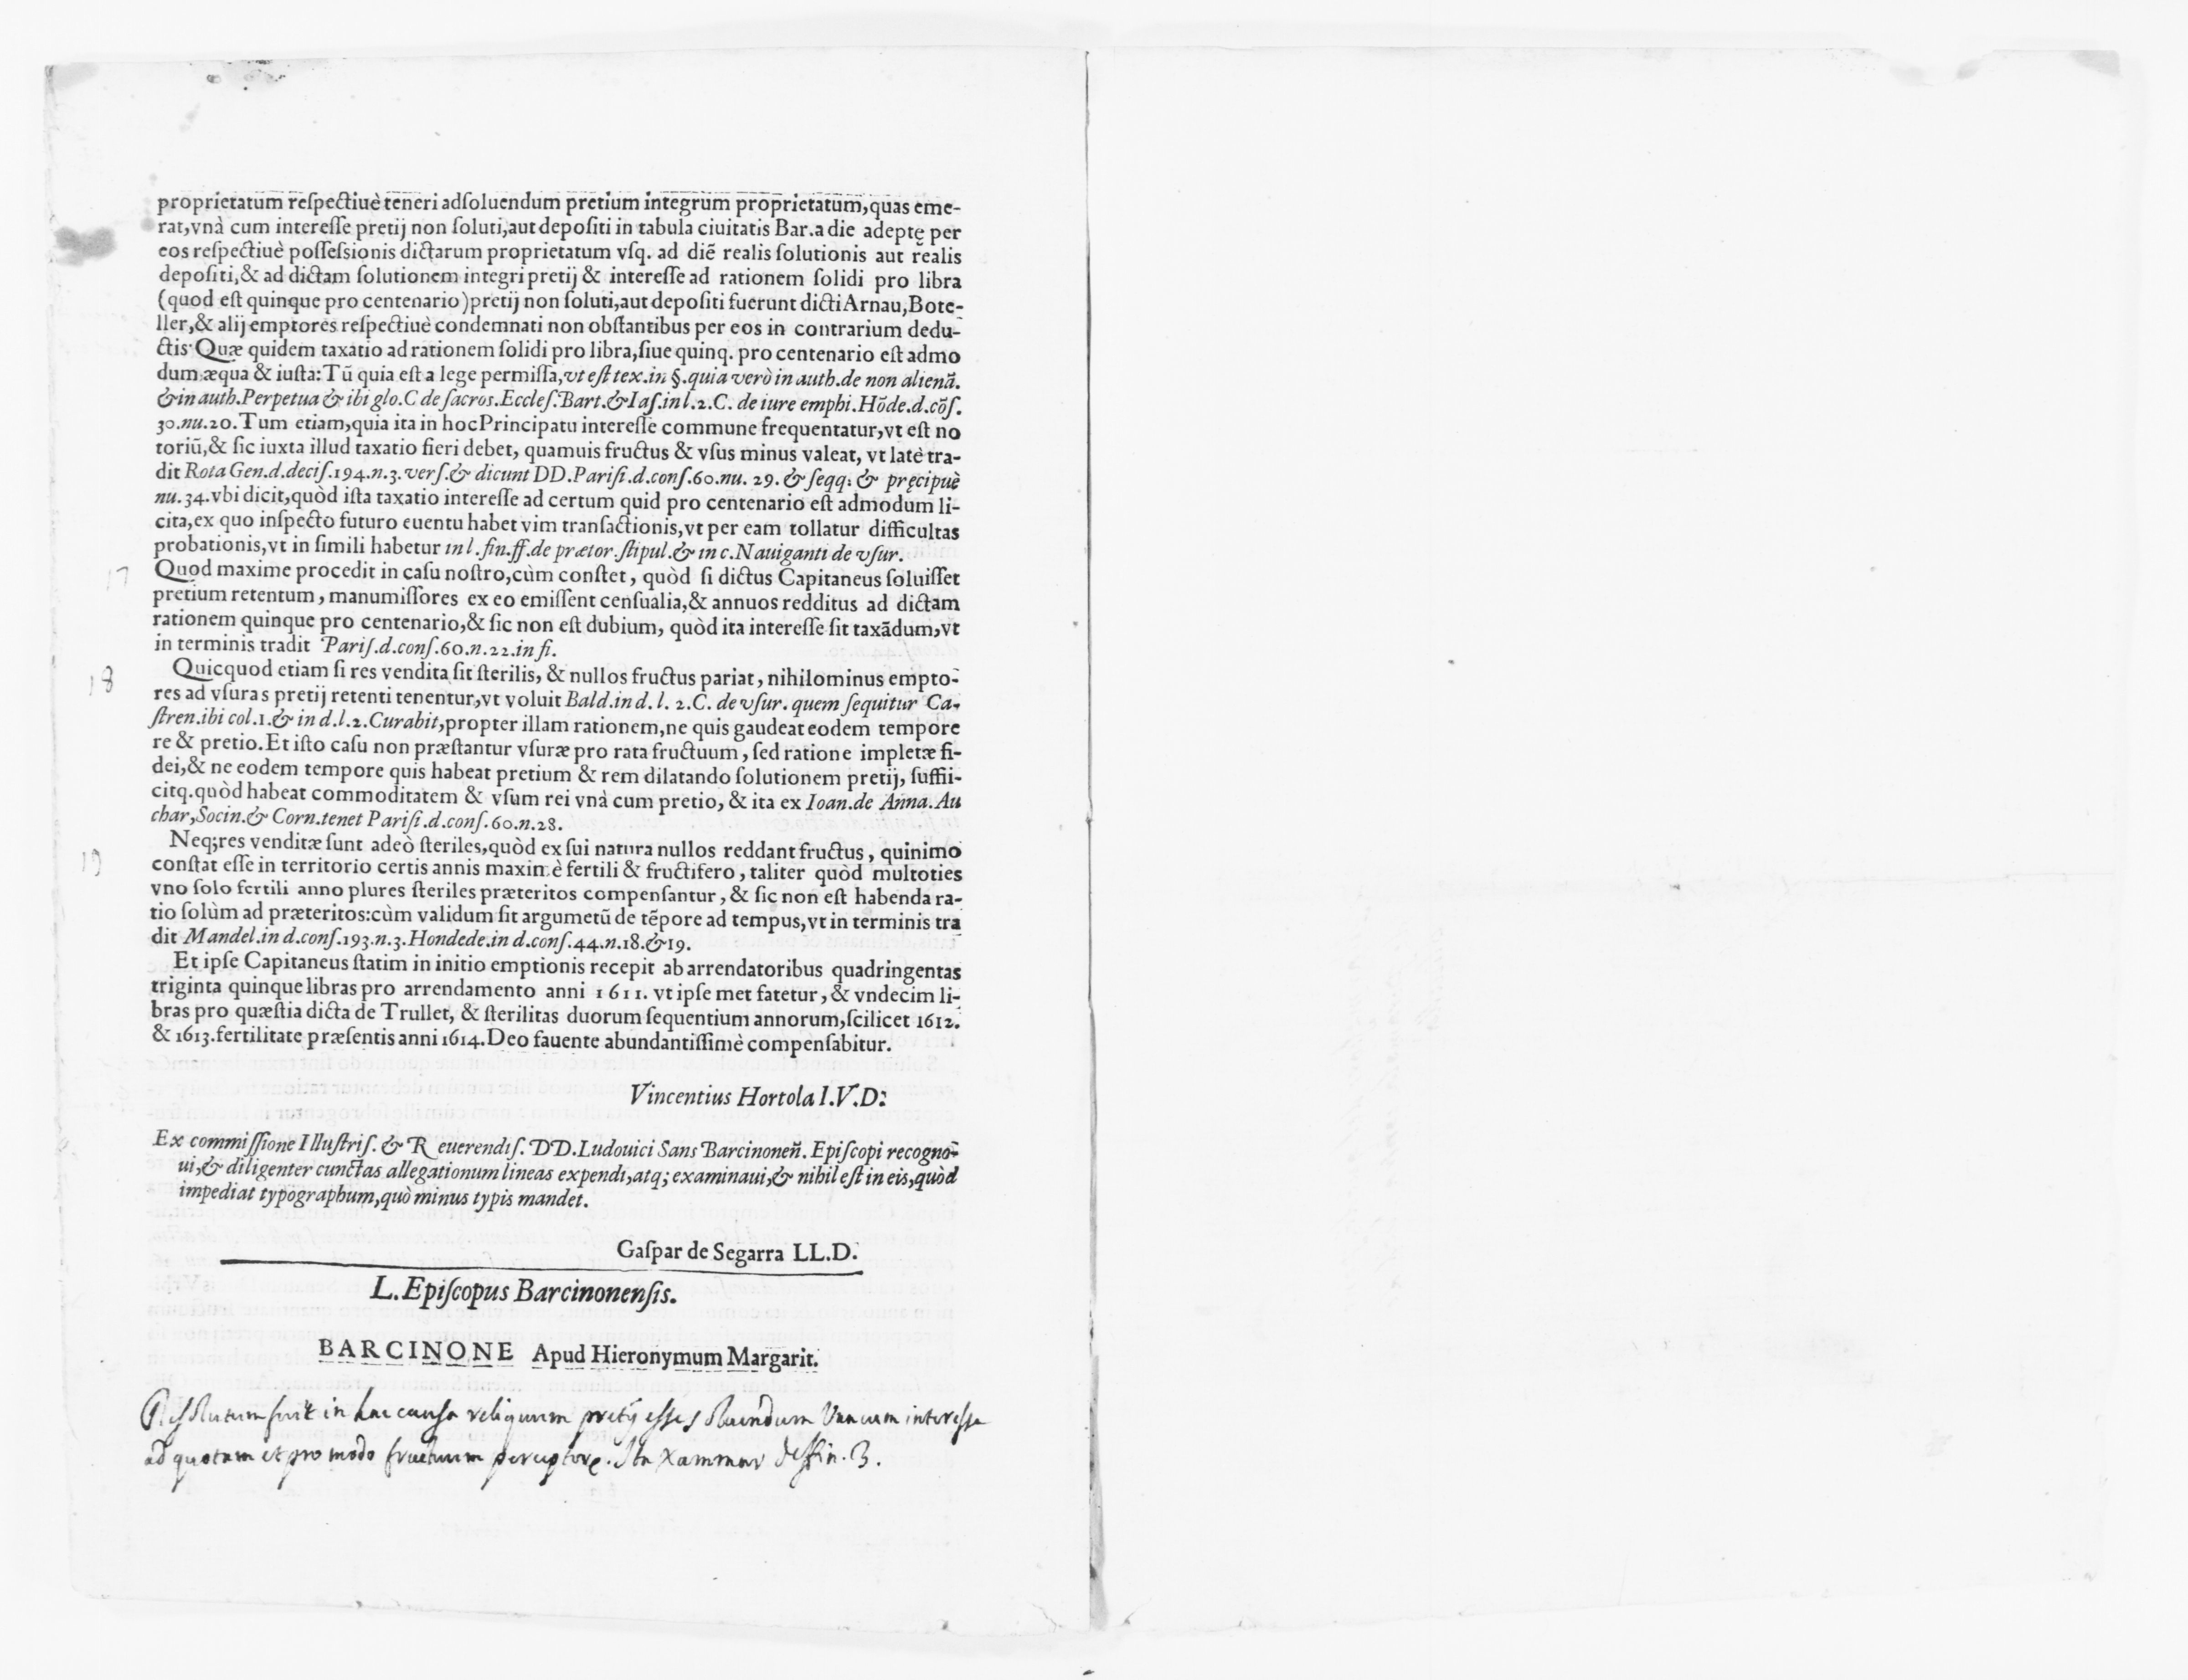 proprietatum reſpectiuè teneri adſoluendum pretium integrum proprietatum,quas eme-
rat,vnà cum intereſſe pretij non ſoluti,aut depoſiti in tabula ciuitatis Bar.a die adeptę per
eos reſpectiuè poſſeſsionis dictarum proprietatum vſq. ad diē realis ſolutionis aut realis
depoſiti,& ad dictam ſolutionem integri pretij & intereſſe ad rationem ſolidi pro libra
(quod eſt quinque pro centenario)pretij non ſoluti,aut depoſiti fuerunt dicti Arnau,Bote-
ller,& alij emptores reſpectiuè condemnati non obſtantibus per eos in contrarium dedu-
ctis·Quæ quidem taxatio ad rationem ſolidi pro libra,ſiue quinq. pro centenario eſt admo
dum æqua & iuſta:Tū quia eſt a lege permiſſa,vt eſt tex.in §.quia verò in auth.de non alienā.
& in auth.Perpetua & ibi glo.C de ſacros.Eccleſ.Bart.& Iaſ.in l.2.C. de iure emphi.Hōde.d.cōſ.
30.nu.20.Tum etiam,quia ita in hoc Principatu intereſſe commune frequentatur,vt eſt no
toriū,& ſic iuxta illud taxatio fieri debet, quamuis fructus & vſus minus valeat, vt latè tra-
dit Rota Gen.d.deciſ.194.n.3.verſ.& dicunt DD.Pariſi.d.conſ.60.nu. 29.& ſeqq: & pręcipuè
nu.34.vbi dicit,quòd iſta taxatio intereſſe ad certum quid pro centenario eſt admodum li-
cita,ex quo inſpecto futuro euentu habet vim tranſactionis,vt per eam tollatur difficultas
probationis,vt in ſimili habetur in l.fin.ff.de prætor.ſtipul.& in c.Nauiganti de vſur.
17 Quod maxime procedit in caſu noſtro,cùm conſtet, quòd ſi dictus Capitaneus ſoluiſſet
pretium retentum, manumiſſores ex eo emiſſent cenſualia,& annuos redditus ad dictam
rationem quinque pro centenario,& ſic non eſt dubium, quòd ita intereſſe ſit taxādum,vt
in terminis tradit Pariſ.d.conſ.60.n.22.in fi.
18 Quicquod etiam ſi res vendita ſit ſterilis, & nullos fructus pariat, nihilominus empto-
res ad vſuras pretij retenti tenentur,vt voluit Bald.in d. l. 2.C. de vſur. quem ſequitur Ca-
ſtren.ibi col.1.& in d.l.2.Curabit,propter illam rationem,ne quis gaudeat eodem tempore
re & pretio.Et iſto caſu non præſtantur vſuræ pro rata fructuum, ſed ratione impletæ fi-
dei,& ne eodem tempore quis habeat pretium & rem dilatando ſolutionem pretij, ſuffii-
citq.quòd habeat commoditatem & vſum rei vnà cum pretio, & ita ex Ioan.de Anna.An
char,Socin.& Corn.tenet Pariſi.d.conſ.60.n.28.
19 Neq;res venditæ ſunt adeò ſteriles,quòd ex ſui natura nullos reddant fructus, quinimo
conſtat eſſe in territorio certis annis maximè fertili & fructifero, taliter quòd multoties
vno ſolo fertili anno plures ſteriles præteritos compenſantur, & ſic non eſt habenda ra-
tio ſolùm ad præteritos:cùm validum ſit argumetū de tēpore ad tempus,vt in terminis tra
dit Mandel.in d.conſ.193.n.3.Hondede.in d.conſ.44.n.18.&19.
Et ipſe Capitaneus ſtatim in initio emptionis recepit ab arrendatoribus quadringentas
triginta quinque libras pro arrendamento anni 1611. vt ipſe met fatetur, & vndecim li-
bras pro quæſtia dicta de Trullet, & ſterilitas duorum ſequentium annorum,ſcilicet 1612.
& 1613.fertilitate præſentis anni 1614.Deo fauente abundantiſſimè compenſabitur.
Vincentius Hortola I.V.D:
Ex commiſſione Illuſtriſ. & Reuerendiſ. DD.Ludouici Sans Barcinoneñ. Epiſcopi recogno-
ui,& diligenter cunctas allegationum lineas expendi,atq; examinaui,& nihil eſt in eis,quòd
impediat typographum,quò minus typis mandet.
Gaſpar de Segarra LL.D.
L.Epiſcopus Barcinonenſis.
BARCINONE Apud Hieronymum Margarit.
fuit in hac causa reliquum pretij esse soluendum Vna cum interesse
ad quotam et pro modo fructuum